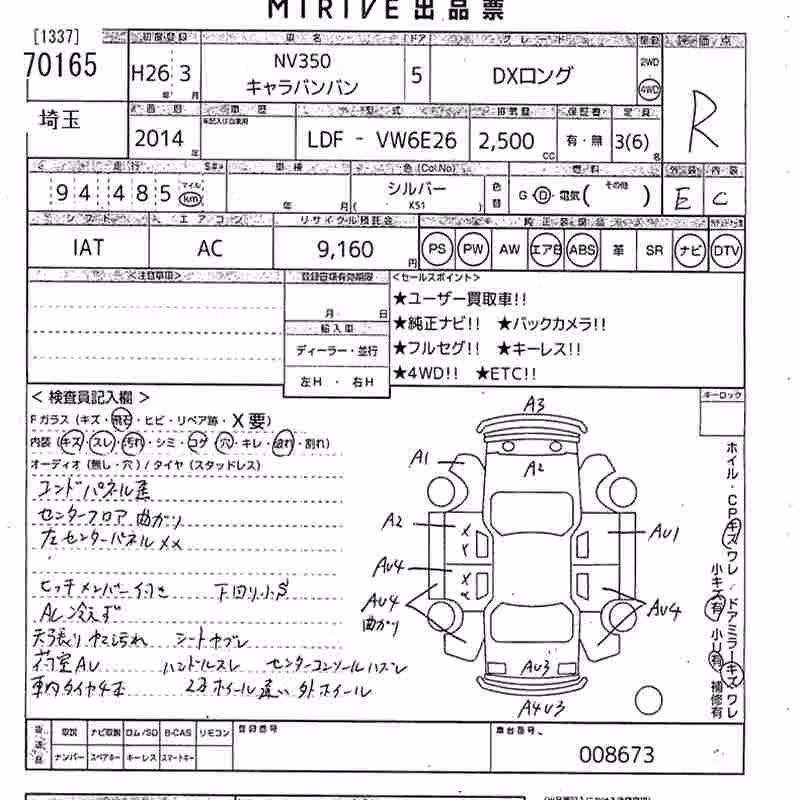 MIRIVE出品票
[1337] 初度登録 車名 ドア グレード 駆動 評価点
70165 H26年3月 NV350 キャラバンバン 5 DXロング 2WD 4WD R
埼玉 車歴 型式 排気量 定員
2014年 LDF - VW6E26 2,500cc 有・無 3(6)名
走行 車検 色(Col.No) 燃料 外装 内装
94,485 マイル km 年 月 シルバー ( K51 ) 色替 G・D・電気( その他 ) E C
シフト エアコン リサイクル預託金
IAT AC 9,160円 PS PW AW エアB ABS 革 SR ナビ DTV
<注意事項> <セールスポイント>
月 日 ★ユーザー買取車!!
輸入車 ★純正ナビ!! ★バックカメラ!!
ディーラー・並行 ★フルセグ!! ★キーレス!!
左H ・ 右H ★4WD!! ★ETC!!
キーロック
<検査員記入欄>
Fガラス (キズ・飛石・ヒビ・リペア跡・X要)
内装 (キズ・スレ・汚れ・シミ・コゲ・穴・キレ・割れ)
オーディオ (無し・穴) / タイヤ (スタッドレス)
センターフロア曲がり
左センターパネルXX
ヒッチメンバー付き 下回り小S
AC冷えず
天張りヤニ汚れ シートヤブレ
荷室AU ハンドルスレ センターコンソールハズレ
車内タイヤ4本 外ホイール
A3
A1 A2
A2 X Y AU1
AU4 X X
AU4 曲がり AU4
AU3
A4U3
ホイル・CPキズワレ ドアミラーキズワレ
小キズ有 小U有 補修有
取説 ナビ取説 ロム/SD B-CAS リモコン 登録番号 車台番号
ナンバー スペアキー キーレス スマートキー 008673